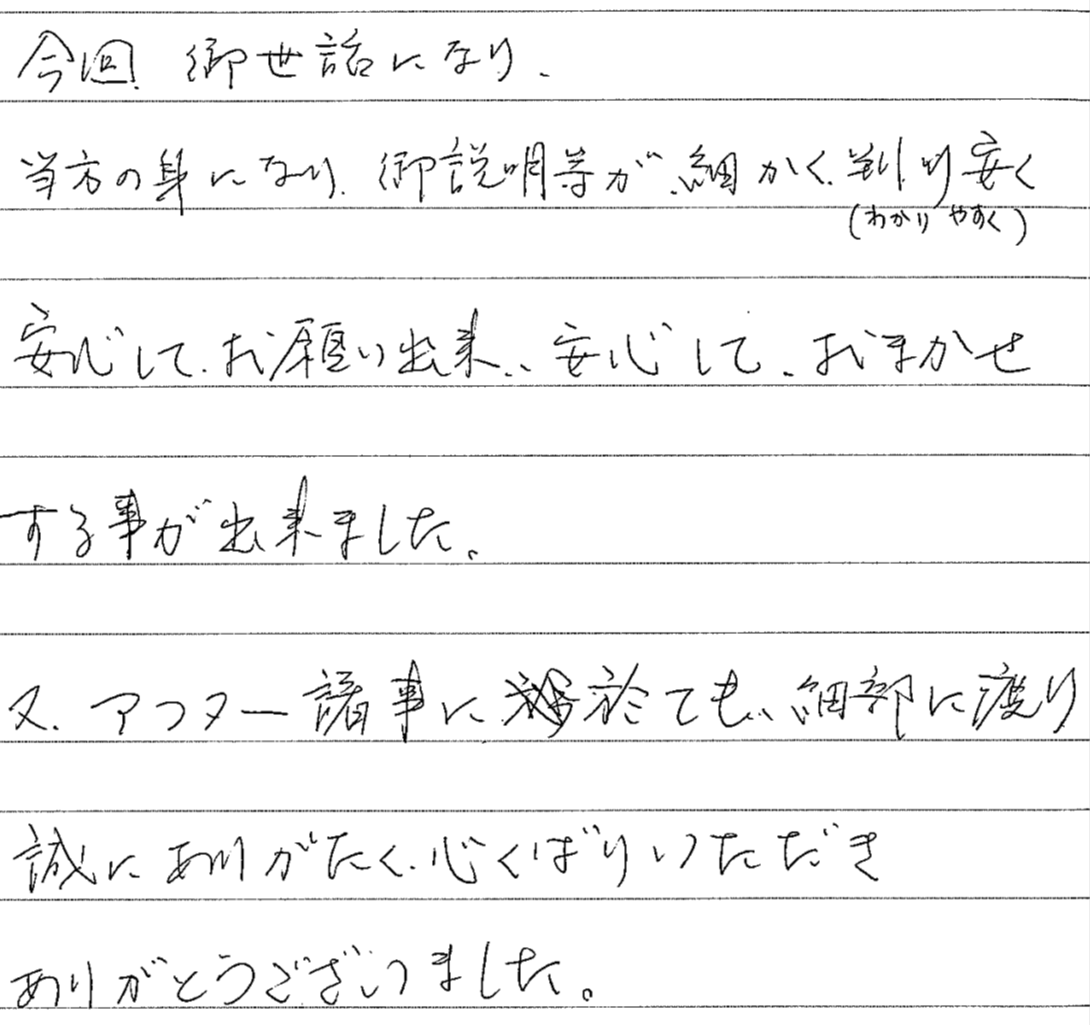 今回、御世話になり、
当方の身になり、御説明等が、細かく、判り安く
(わかりやすく)
安心して、お願い出来、、安心して、おまかせ
する事が出来ました。
又、アフター諸事に於ても、細部に渡り
誠にありがたく、心くばりいただき
ありがとうございました。